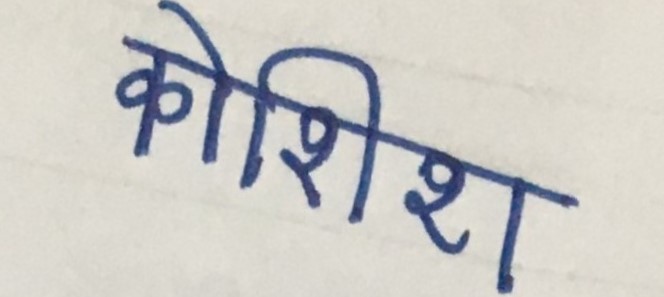 कोशिश